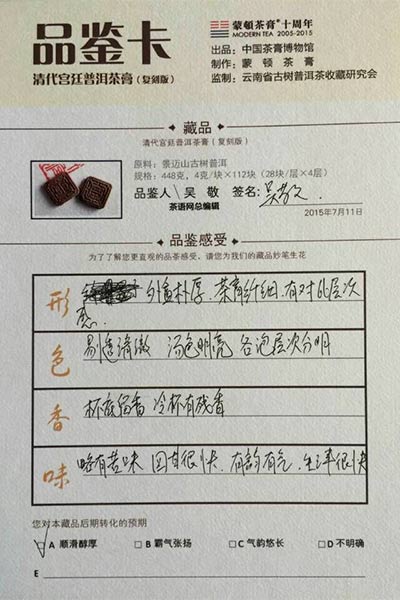 品鉴卡
清代宫廷普洱茶膏(复刻版)
蒙顿茶膏®十周年
MODERN TEA 2005-2015
出品:中国茶膏博物馆
制作:蒙顿茶膏
监制:云南省古树普洱茶收藏研究会
藏品
清代宫廷普洱茶膏(复刻版)
原料:景迈山古树普洱
规格:448克,4克/块×112块(28块/层×4层)
品鉴人\吴 敬 签名:吴敬
茶语网总编辑
2015年7月11日
品鉴感受
为了了解您更直观的品茶感受,请您为我们的藏品妙笔生花
形 外质朴厚.茶膏纤细.有对比层次
感.
色 汤色明亮 各泡层次分明
香 杯底留香 冷杯有残香
味 略有苦味 回甘很快.有韵有气.生津很快
您对本藏品后期转化的预期
A 顺滑醇厚 □B 霸气张扬 □C 气韵悠长 □D 不明确
E